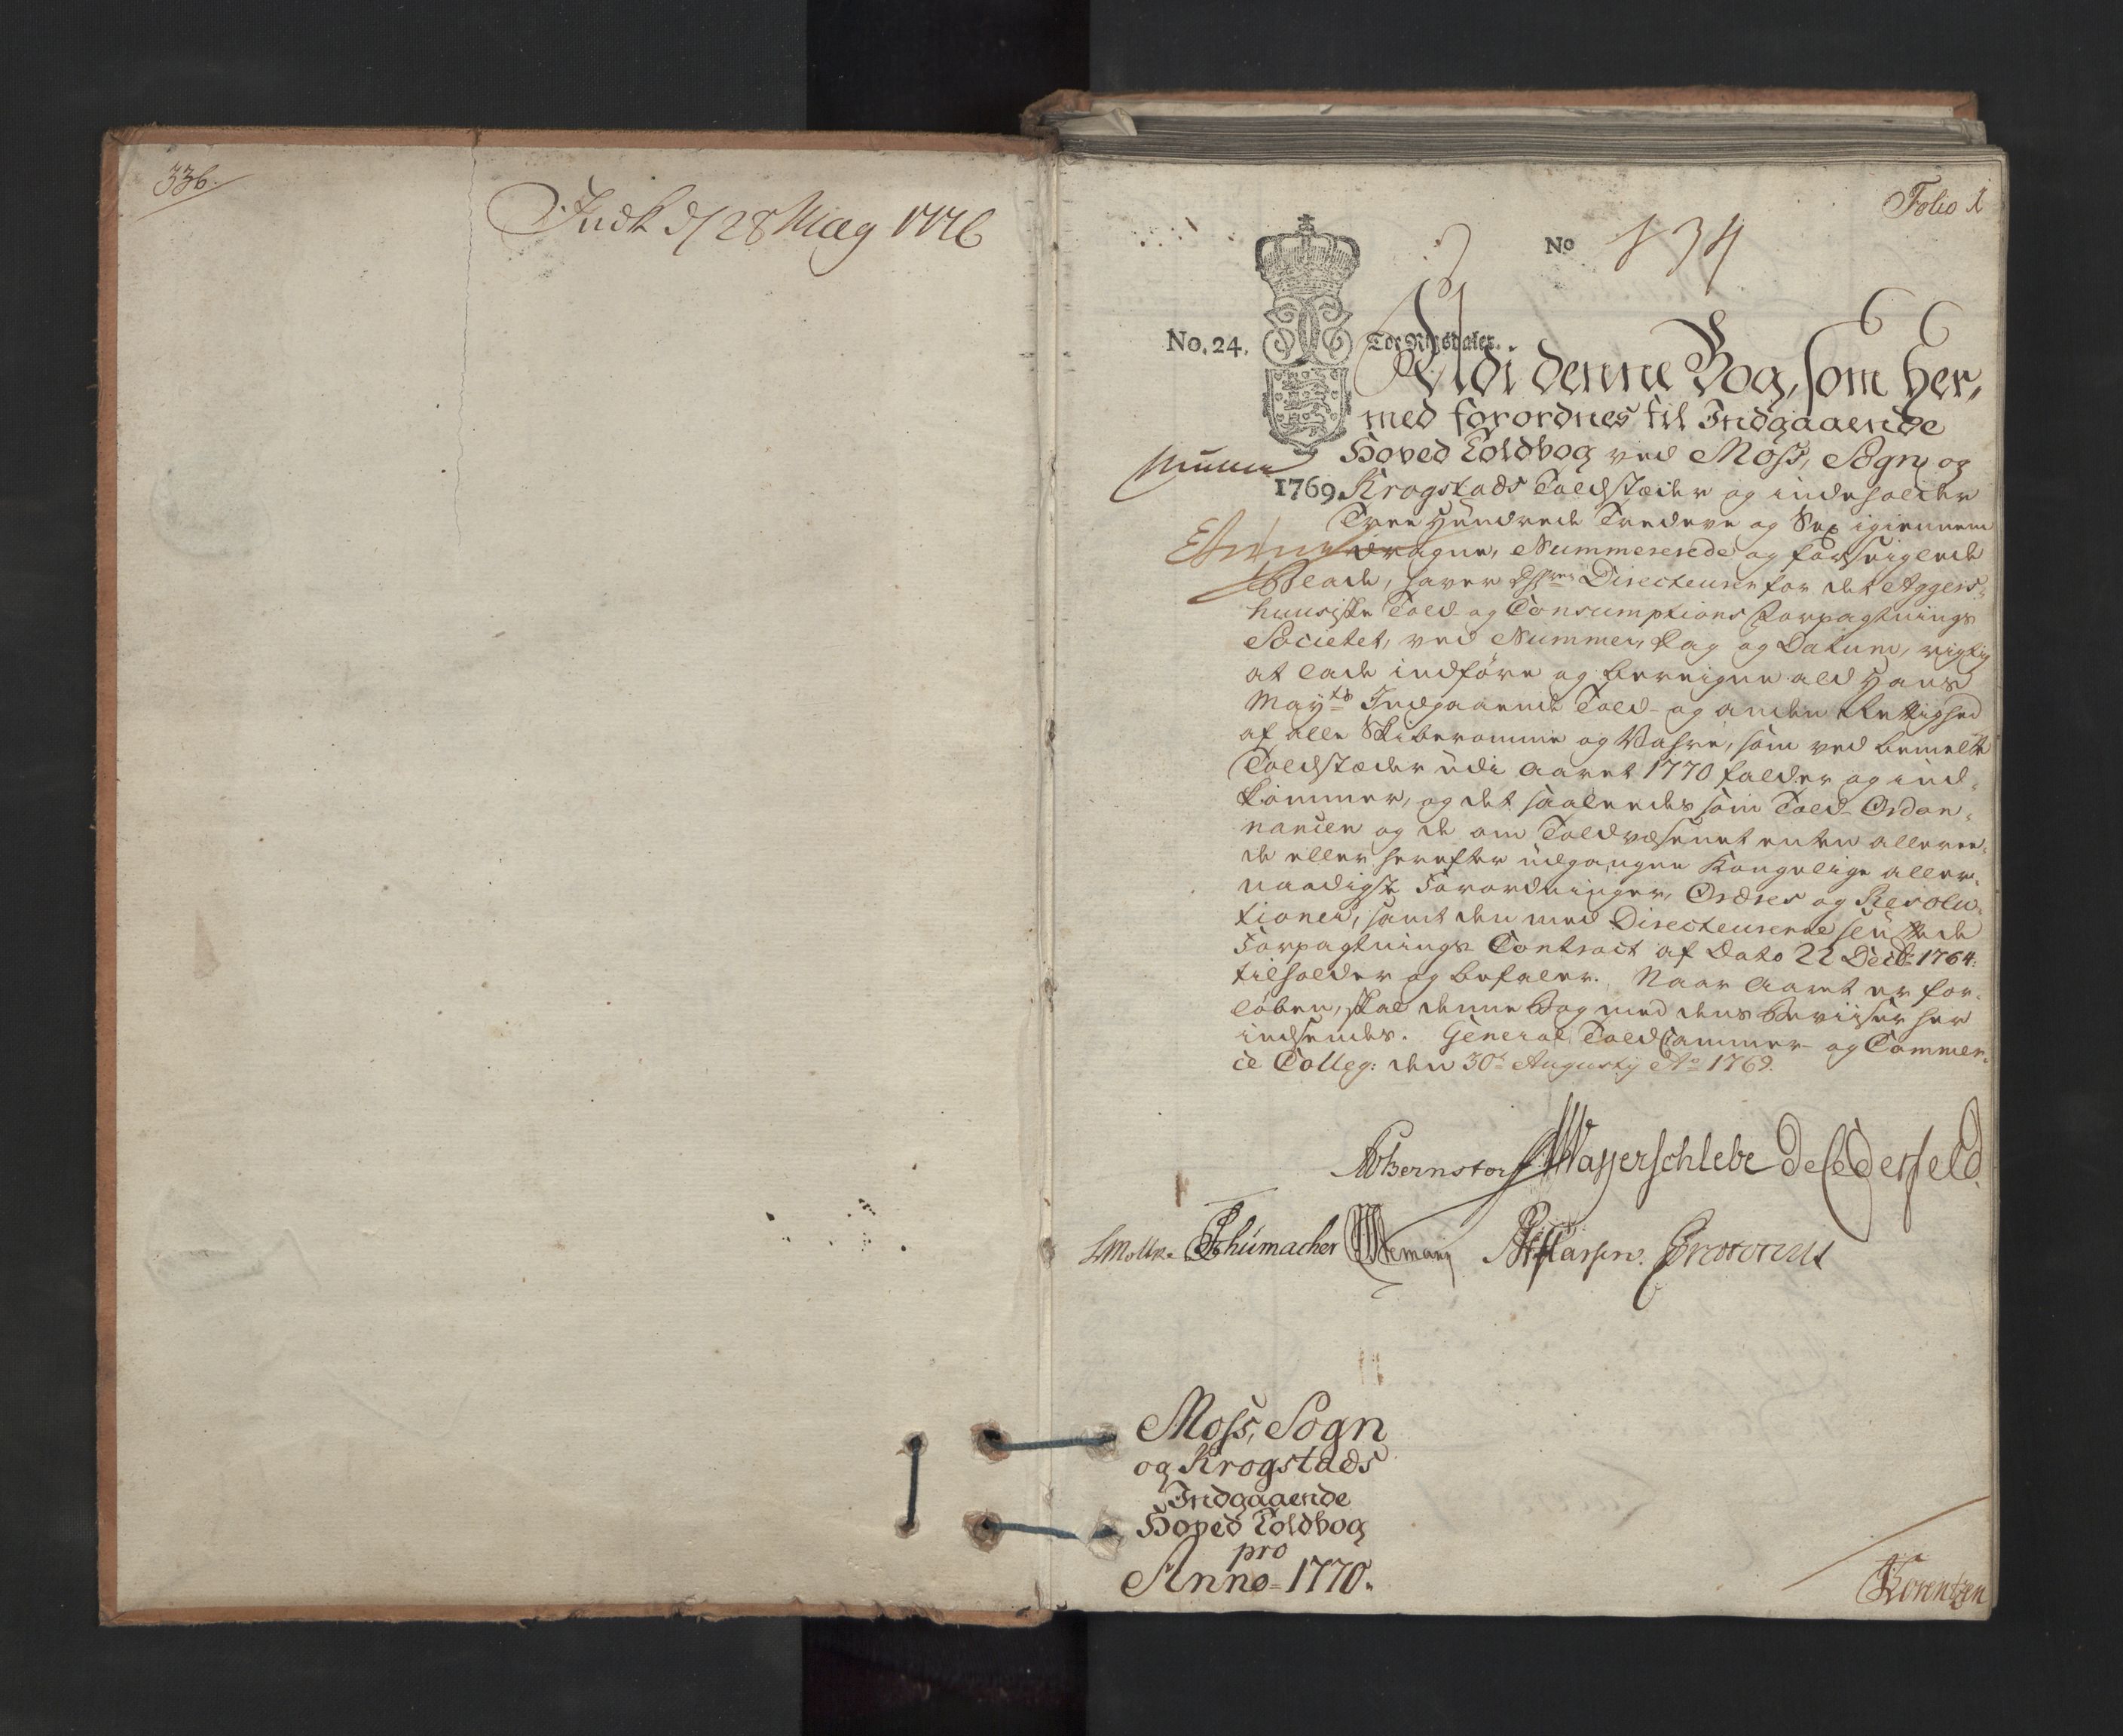 336.
Indk d 28 May 1776
Folio 1
No 134
No. 24.
Toe Rigsdaler.
Udi denne Bog, som her,
med forordnes til Indgaaende
Hoved Toldbog ved Moss, Sogn og
1769.
Krogstads Toldstæder og indeholder
Tree Hundrede Tredeve og Sex igiennem
dragne, Nummererede og forseiglede
Blade, haver Directeurer for det Aggers-
huusiske Told- og Consumptions Forpagtnings
Societet, ved Nummer, Dag og Datum, rigtig
at lade indföre og beregne ald Hans
Mayts Indgaaende Told- og anden Rettighed
af alle Skiberomme og Vahre, som ved bemelte
Toldstæder udi Aaret 1770 falder og ind-
kommer, og det saaledes som Told-Ordon-
nancen og de om Toldvæsenet enten alleree-
de eller herefter udgangne Kongelige aller-
naadigste Forordninger, Ordres og Resolu-
tioner, samt den med Directeurerne sluttede
Forpagtnings Contract af Dato 22 Decbr 1764.
tilholder og befaler. Naar Aaret er for-
löben, skal denne Bog med dens Beviiser her
indsendes. General Toldkammer- og Commer-
ce Colleg: den 30t Augusty Ao 1769.
Bernstorff Wayerschlebe de Cederfeld.
LMoltke Schumacher
Moss, Sogn
og Krogstads
Indgaaende
Hoved Toldbog
pro
Anno 1770.
Lorentzen